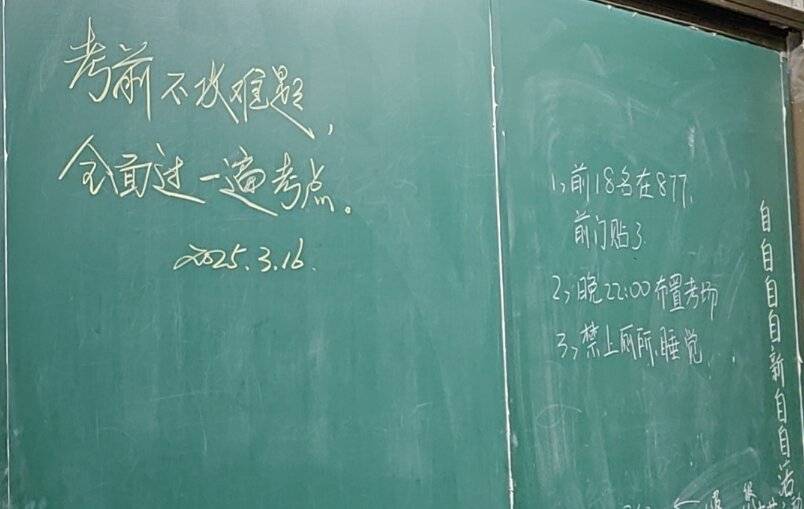 考前不攻难题，
全面过一遍考点。
2025.3.16.
1、前18名在877，
前门贴了
2、晚22:00布置考场
3、禁上厕所、睡觉
自自自自新自自